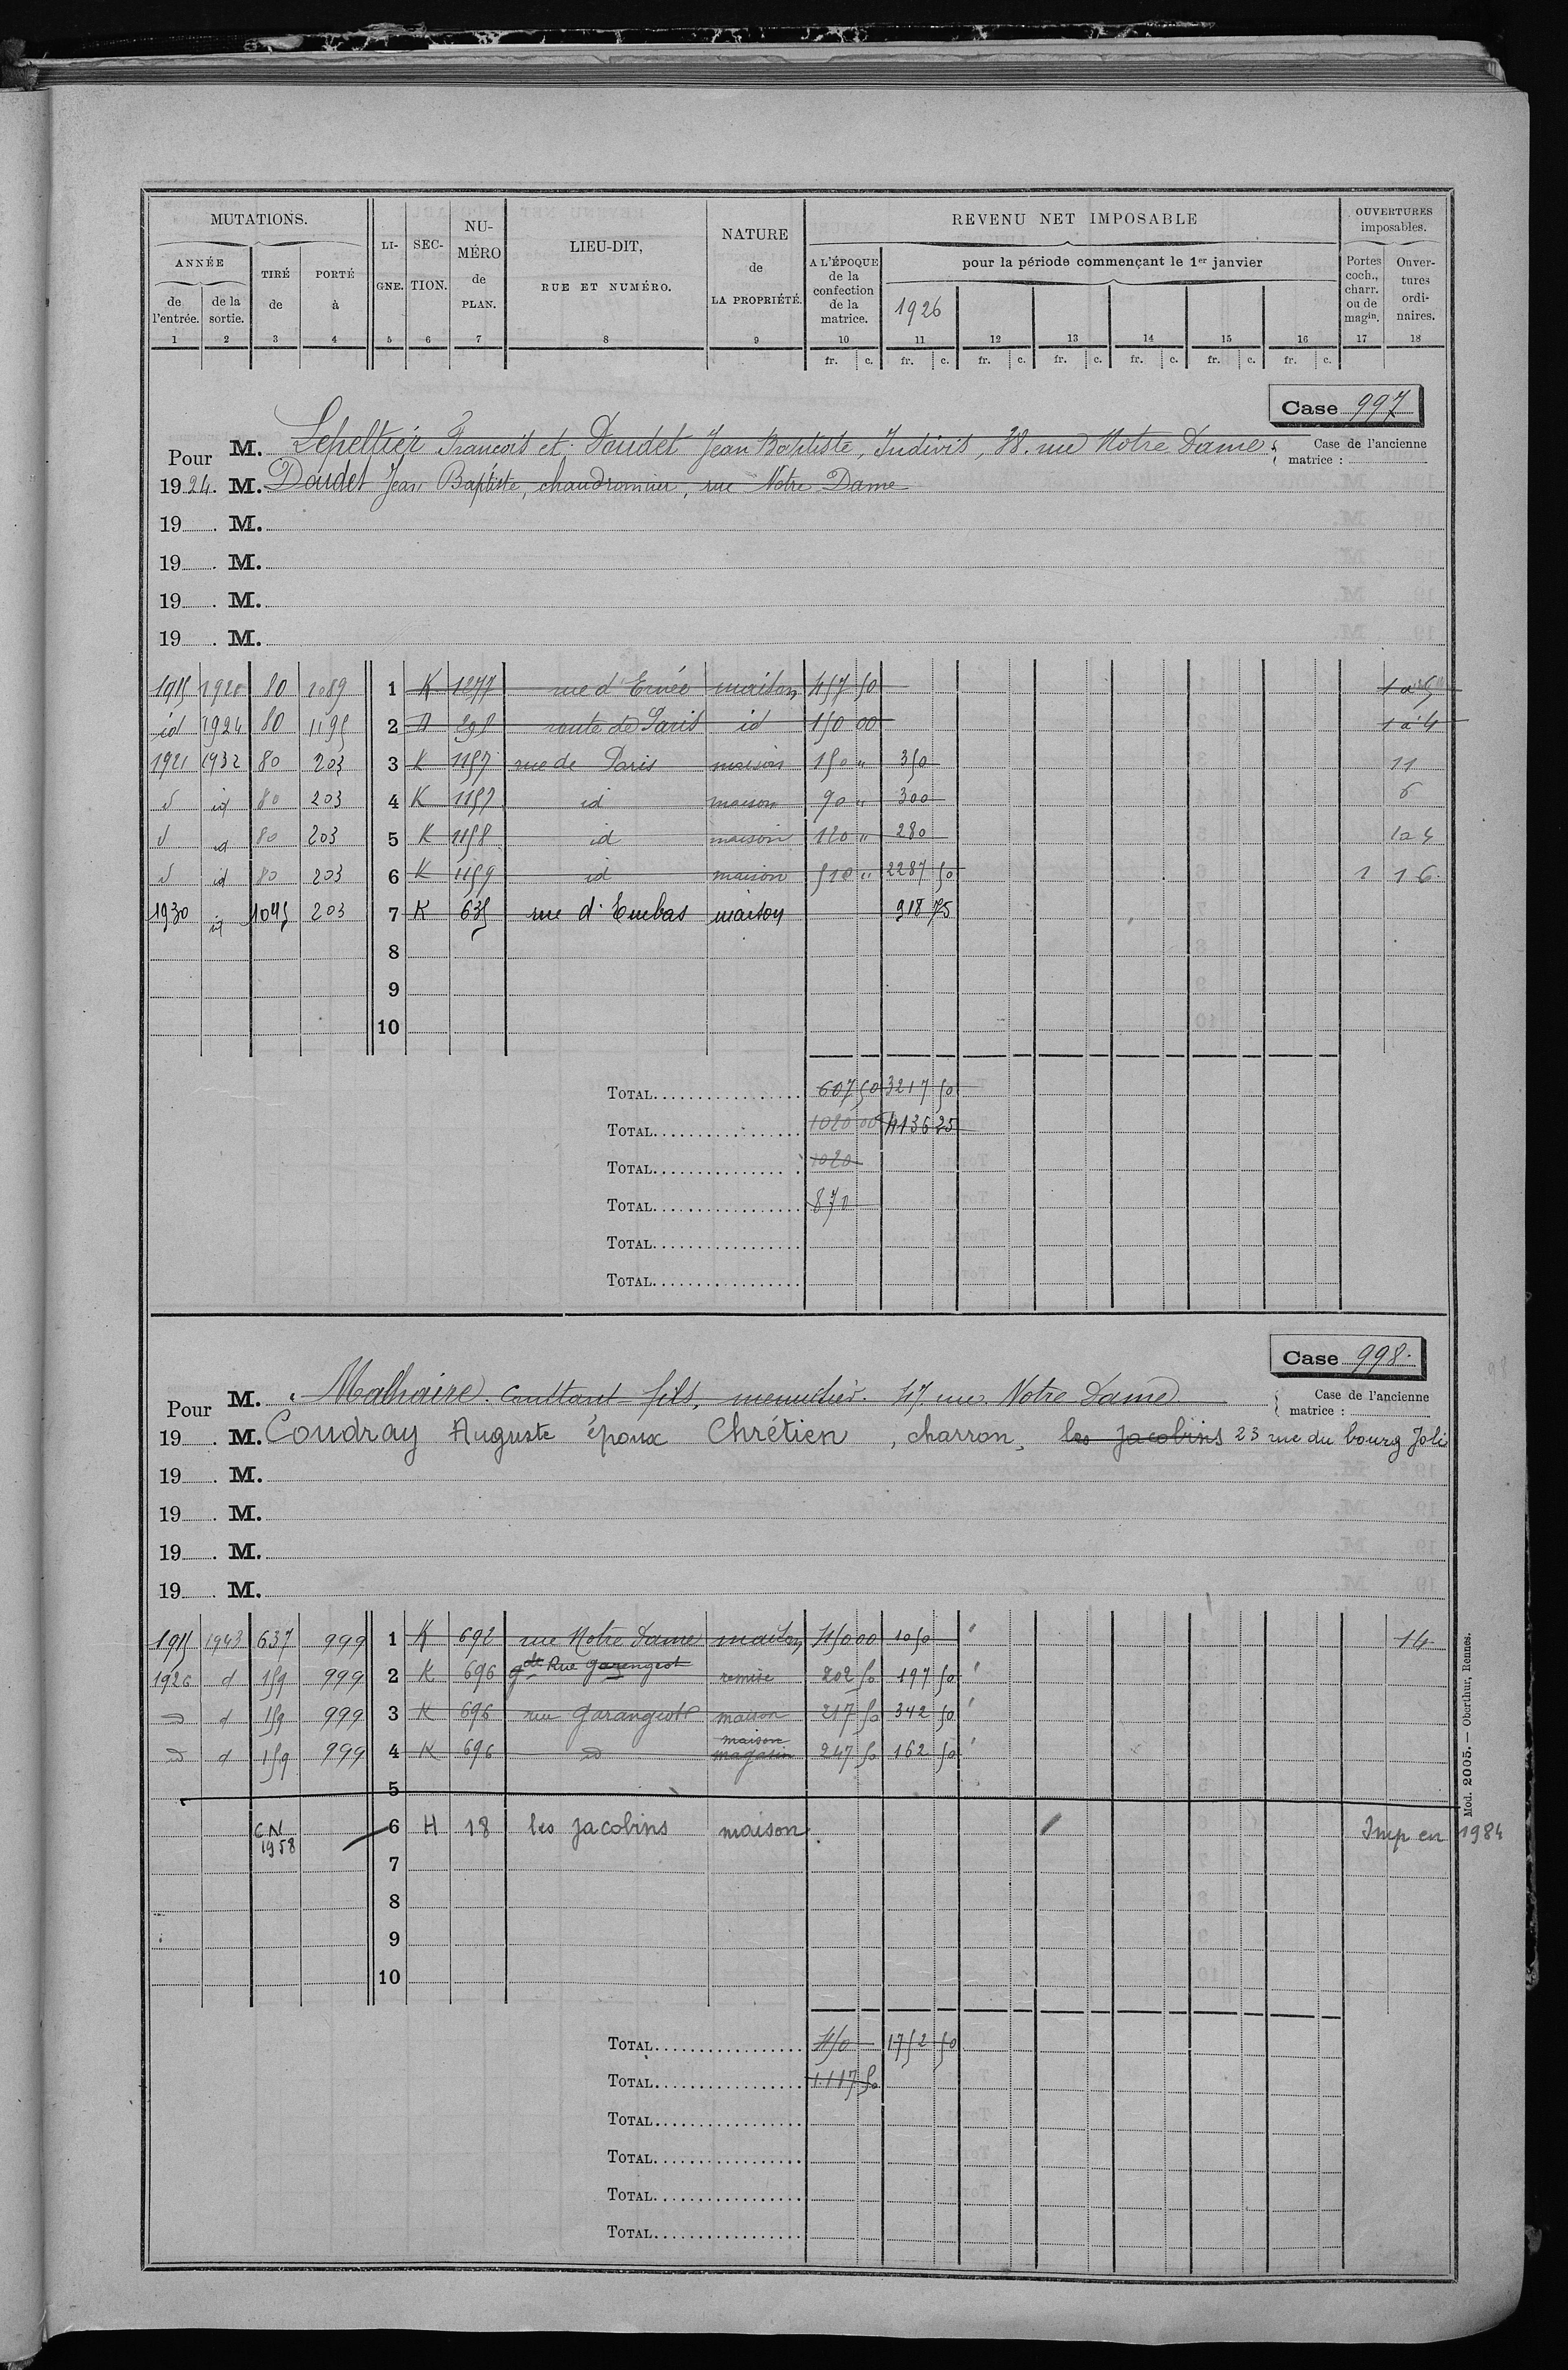 MUTATIONS. LI- SEC- NU- LIEU-DIT, NATURE REVENU NET IMPOSABLE OUVERTURES
ANNÉE TIRÉ PORTÉ GNE. TION. MÉRO RUE ET NUMÉRO. de A L'ÉPOQUE pour la période commençant le 1er janvier imposables.
de l'entrée. de la sortie. de à de PLAN. LA PROPRIÉTÉ. de la confection de la matrice. 1926 Portes coch., charr. ou de magin. Ouver- tures ordi- naires.
1 2 3 4 5 6 7 8 9 10 11 12 13 14 15 16 17 18
fr. c. fr. c. fr. c. fr. c. fr. c. fr. c. fr. c.
Case 997
Pour M. Lepeltier François et Doudet Jean Baptiste, Indivis, 38. rue Notre Dame Case de l'ancienne matrice :
1924. M. Doudet Jean Baptiste, chaudronnier, rue Notre Dame
19 . M.
19 . M.
19 . M.
19 . M.
1915 80 1089 1 K 1277 rue d'Ernée maison 457 50
id 1924 80 1195 2 route de Paris id 150 00 1 à 4
1921 1932 80 203 3 K 1157 rue de Paris maison 150 " 350 11
d id 80 203 4 K 1157 id maison 90 " 300 6
d id 80 203 5 K 1158 id maison 120 " 280 1 à 4
d id 80 203 6 K 1159 id maison 510 " 2287 50 1 16
1930 id 1045 203 7 K 635 rue d'Embas maison 918 75
8
9
10
TOTAL 607 50 3217 50
TOTAL 1020 00 4136 25
TOTAL 1020
TOTAL 870
TOTAL
TOTAL
Case 998.
Pour M. Malhaire Constant fils, menuisier. 47 rue Notre Dame Case de l'ancienne matrice :
19 . M. Coudray Auguste époux Chrétien, charron, les Jacobins 23 rue du bourg Joli
19 . M.
19 . M.
19 . M.
19 . M.
1915 1943 637 999 1 K 692 rue Notre Dame maison 450 00 1050 14
1926 d 159 999 2 K 696 gde Rue Garengeot remise 202 50 197 50
d d 159 999 3 K 696 rue Garangeot maison 217 50 342 50
d d 159 999 4 K 696 d magasin maison 247 50 162 50
5
CN 1958 6 H 18 les Jacobins maison Imp en 1984
7
8
9
10
TOTAL 450 1752 50
TOTAL 1.117 50
TOTAL
TOTAL
TOTAL
TOTAL
Mod. 2005. — Oberthur, Rennes.